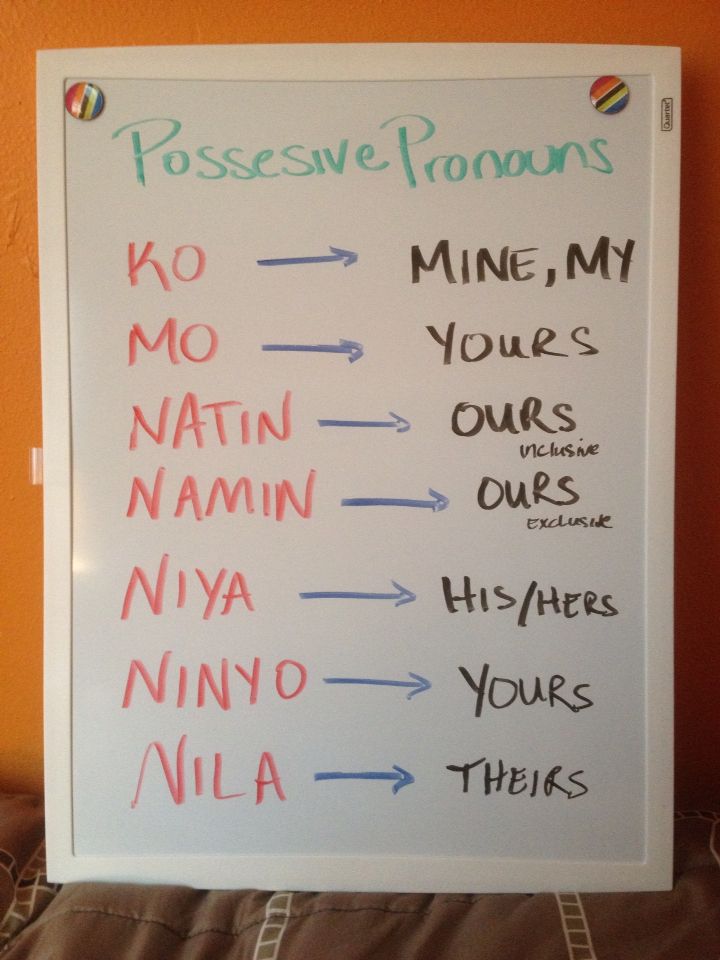 Quartet
Possesive Pronouns
KO → MINE, MY
MO → YOURS
NATIN → OURS
inclusive
NAMIN → OURS
Exclusive
NIYA → HIS/HERS
NINYO → YOURS
NILA → THEIRS